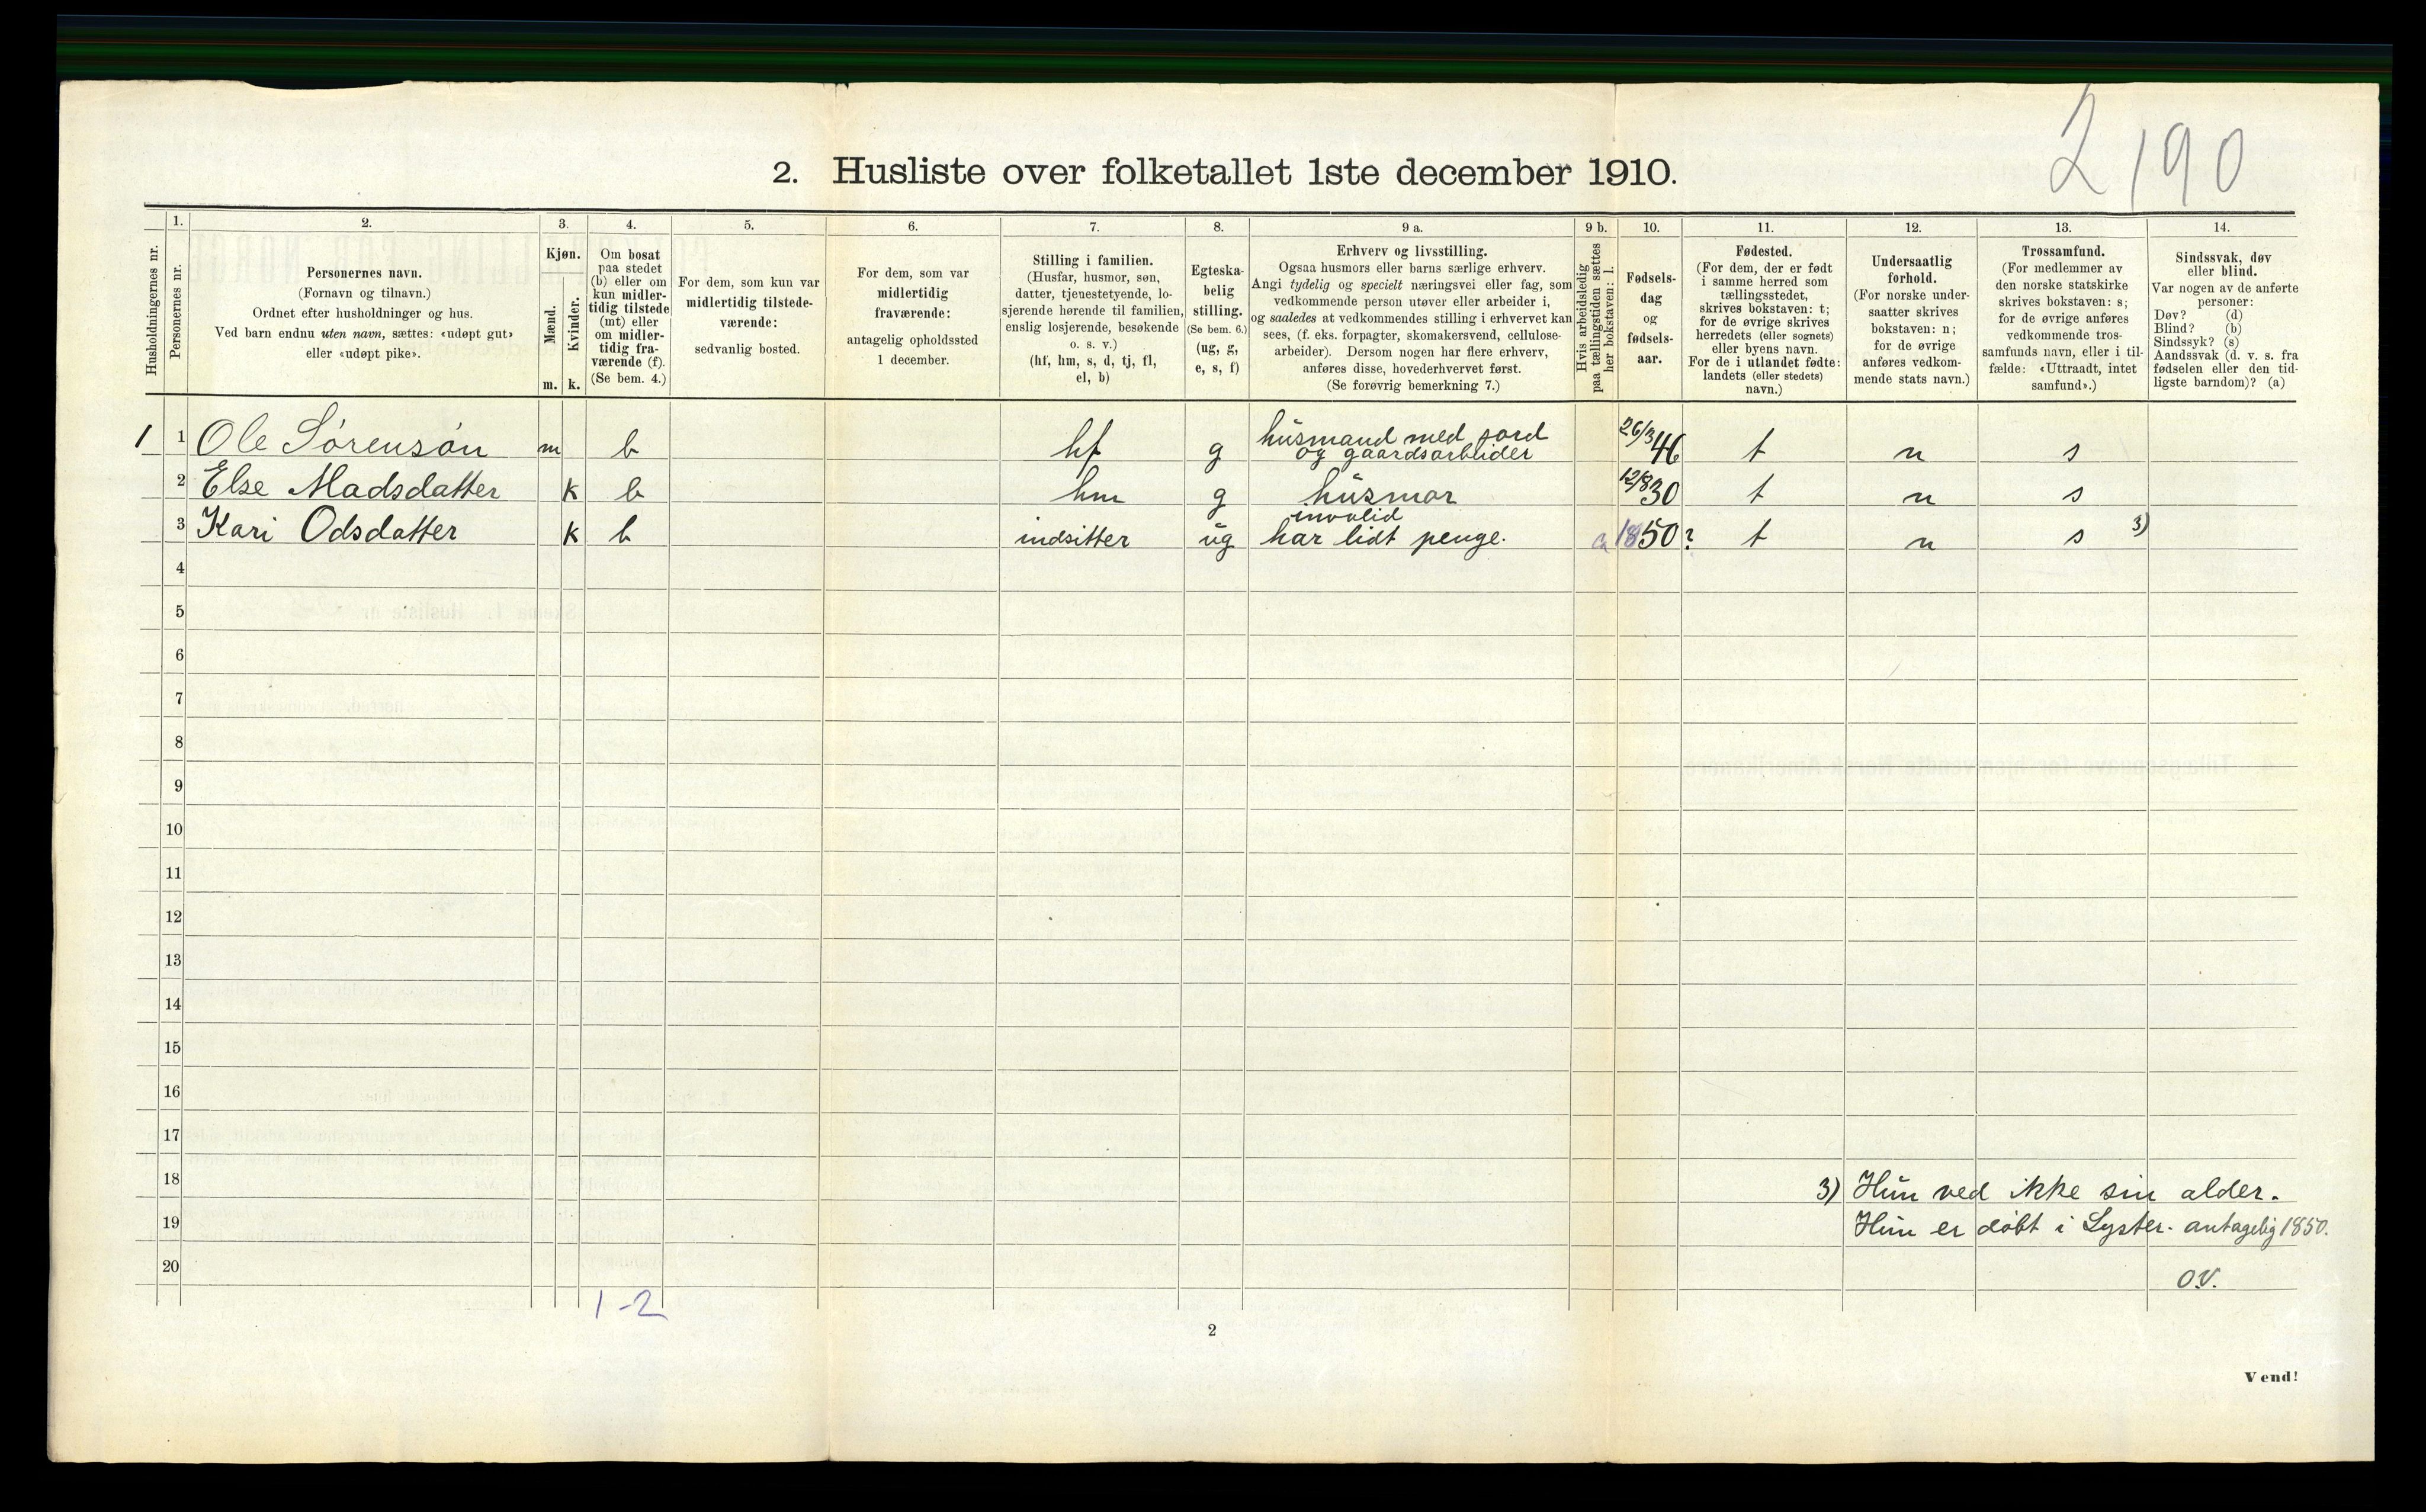 2190
2. Husliste over folketallet 1ste december 1910.
Husholdningernes nr.
1.
Personernes nr.
2.
Personernes navn.
(Fornavn og tilnavn.)
Ordnet efter husholdninger og hus.
Ved barn endnu uten navn, sættes: «udøpt gut»
eller «udøpt pike».
3.
Kjøn.
Mænd.
Kvinder.
m. k.
4.
Om bosat
paa stedet
(b) eller om
kun midler-
tidig tilstede
(mt) eller
om midler-
tidig fra-
værende (f).
(Se bem. 4.)
5.
For dem, som kun var
midlertidig tilstede-
værende:
sedvanlig bosted.
6.
For dem, som var
midlertidig
fraværende:
antagelig opholdssted
1 december.
7.
Stilling i familien.
(Husfar, husmor, søn,
datter, tjenestetyende, lo-
sjerende hørende til familien,
enslig losjerende, besøkende
o. s. v.)
(hf, hm, s, d, tj, fl,
el, b)
8.
Egteska-
belig
stilling.
(Se bem. 6.)
(ug, g,
e, s, f)
9 a.
Erhverv og livsstilling.
Ogsaa husmors eller barns særlige erhverv.
Angi tydelig og specielt næringsvei eller fag, som
vedkommende person utøver eller arbeider i,
og saaledes at vedkommendes stilling i erhvervet kan
sees, (f. eks. forpagter, skomakersvend, cellulose-
arbeider). Dersom nogen har flere erhverv,
anføres disse, hovederhvervet først.
(Se forøvrig bemerkning 7.)
9 b.
Hvis arbeidsledig
paa tællingstiden sættes
her bokstaven: l.
10.
Fødsels-
dag
og
fødsels-
aar.
11.
Fødested.
(For dem, der er født
i samme herred som
tællingsstedet,
skrives bokstaven: t;
for de øvrige skrives
herredets (eller sognets)
eller byens navn.
For de i utlandet fødte:
landets (eller stedets)
navn.)
12.
Undersaatlig
forhold.
(For norske under-
saatter skrives
bokstaven: n;
for de øvrige
anføres vedkom-
mende stats navn.)
13.
Trossamfund.
(For medlemmer av
den norske statskirke
skrives bokstaven: s;
for de øvrige anføres
vedkommende tros-
samfunds navn, eller i til-
fælde: «Uttraadt, intet
samfund».)
14.
Sindssvak, døv
eller blind.
Var nogen av de anførte
personer:
Døv? (d)
Blind? (b)
Sindssyk? (s)
Aandssvak (d. v. s. fra
fødselen eller den tid-
ligste barndom)? (a)
1 1 Ole Sørensøn m b hf g husmand med jord og gaardsarbeider 26/3 46 t n s
2 Else Madsdatter k b hm g husmor 12/8 30 t n s
3 Kari Odsdatter k b indsitter ug invalid har lidt penge. ca 1850? t n s 3)
4
5
6
7
8
9
10
11
12
13
14
15
16
17
18
19
20
3) Hun ved ikke sin alder.
Hun er døbt i Lyster. antagelig 1850.
O.V.
1-2
2
Vend!